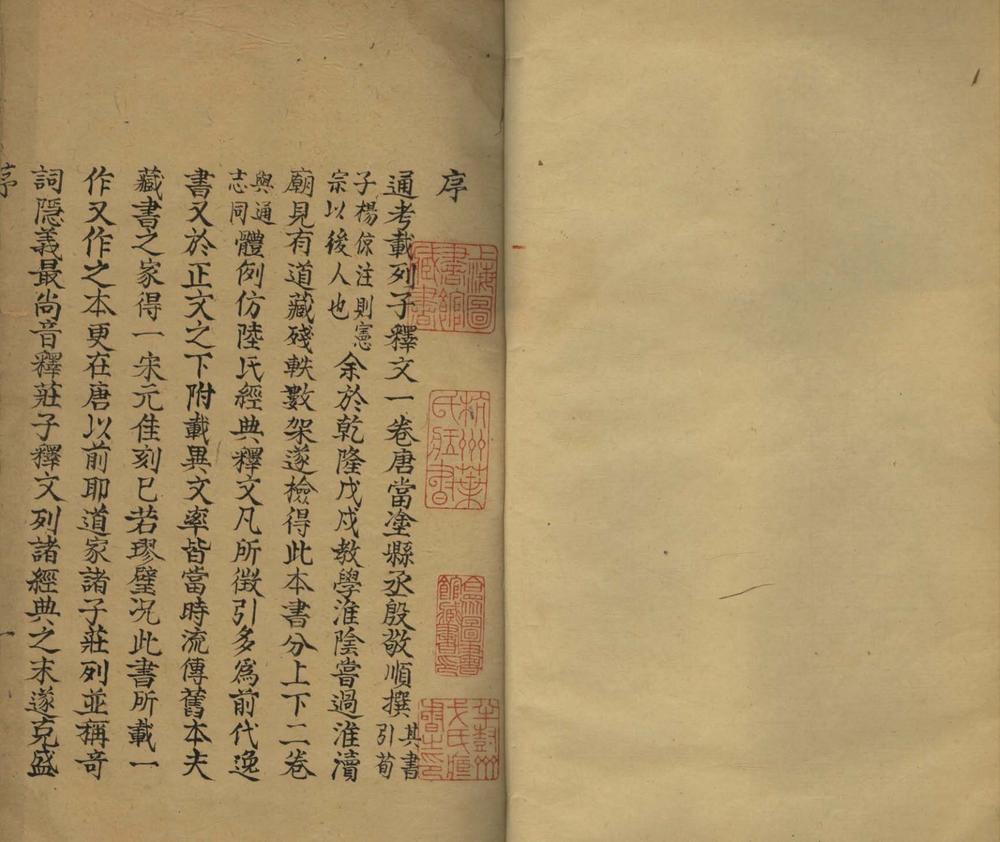 序
通考載列子釋文一卷唐當塗縣丞殷敬順撰其書引荀
子楊倞注則憲宗以後人也余於乾隆戊戌教學淮陰嘗過淮瀆
廟見有道藏殘軼數架遂檢得此本書分上下二卷
與通志同體例仿陸氏經典釋文凡所徵引多爲前代逸
書又於正文之下附載異文率皆當時流傳舊本夫
藏書之家得一宋元佳刻已若璆璧况此書所載一
作又作之本更在唐以前耶道家諸子莊列並稱奇
詞隠義最尚音釋莊子釋文列諸經典之末遂克盛
序 一
上海圖書館藏書
杭州葉氏臧書
合眾圖書館藏書印